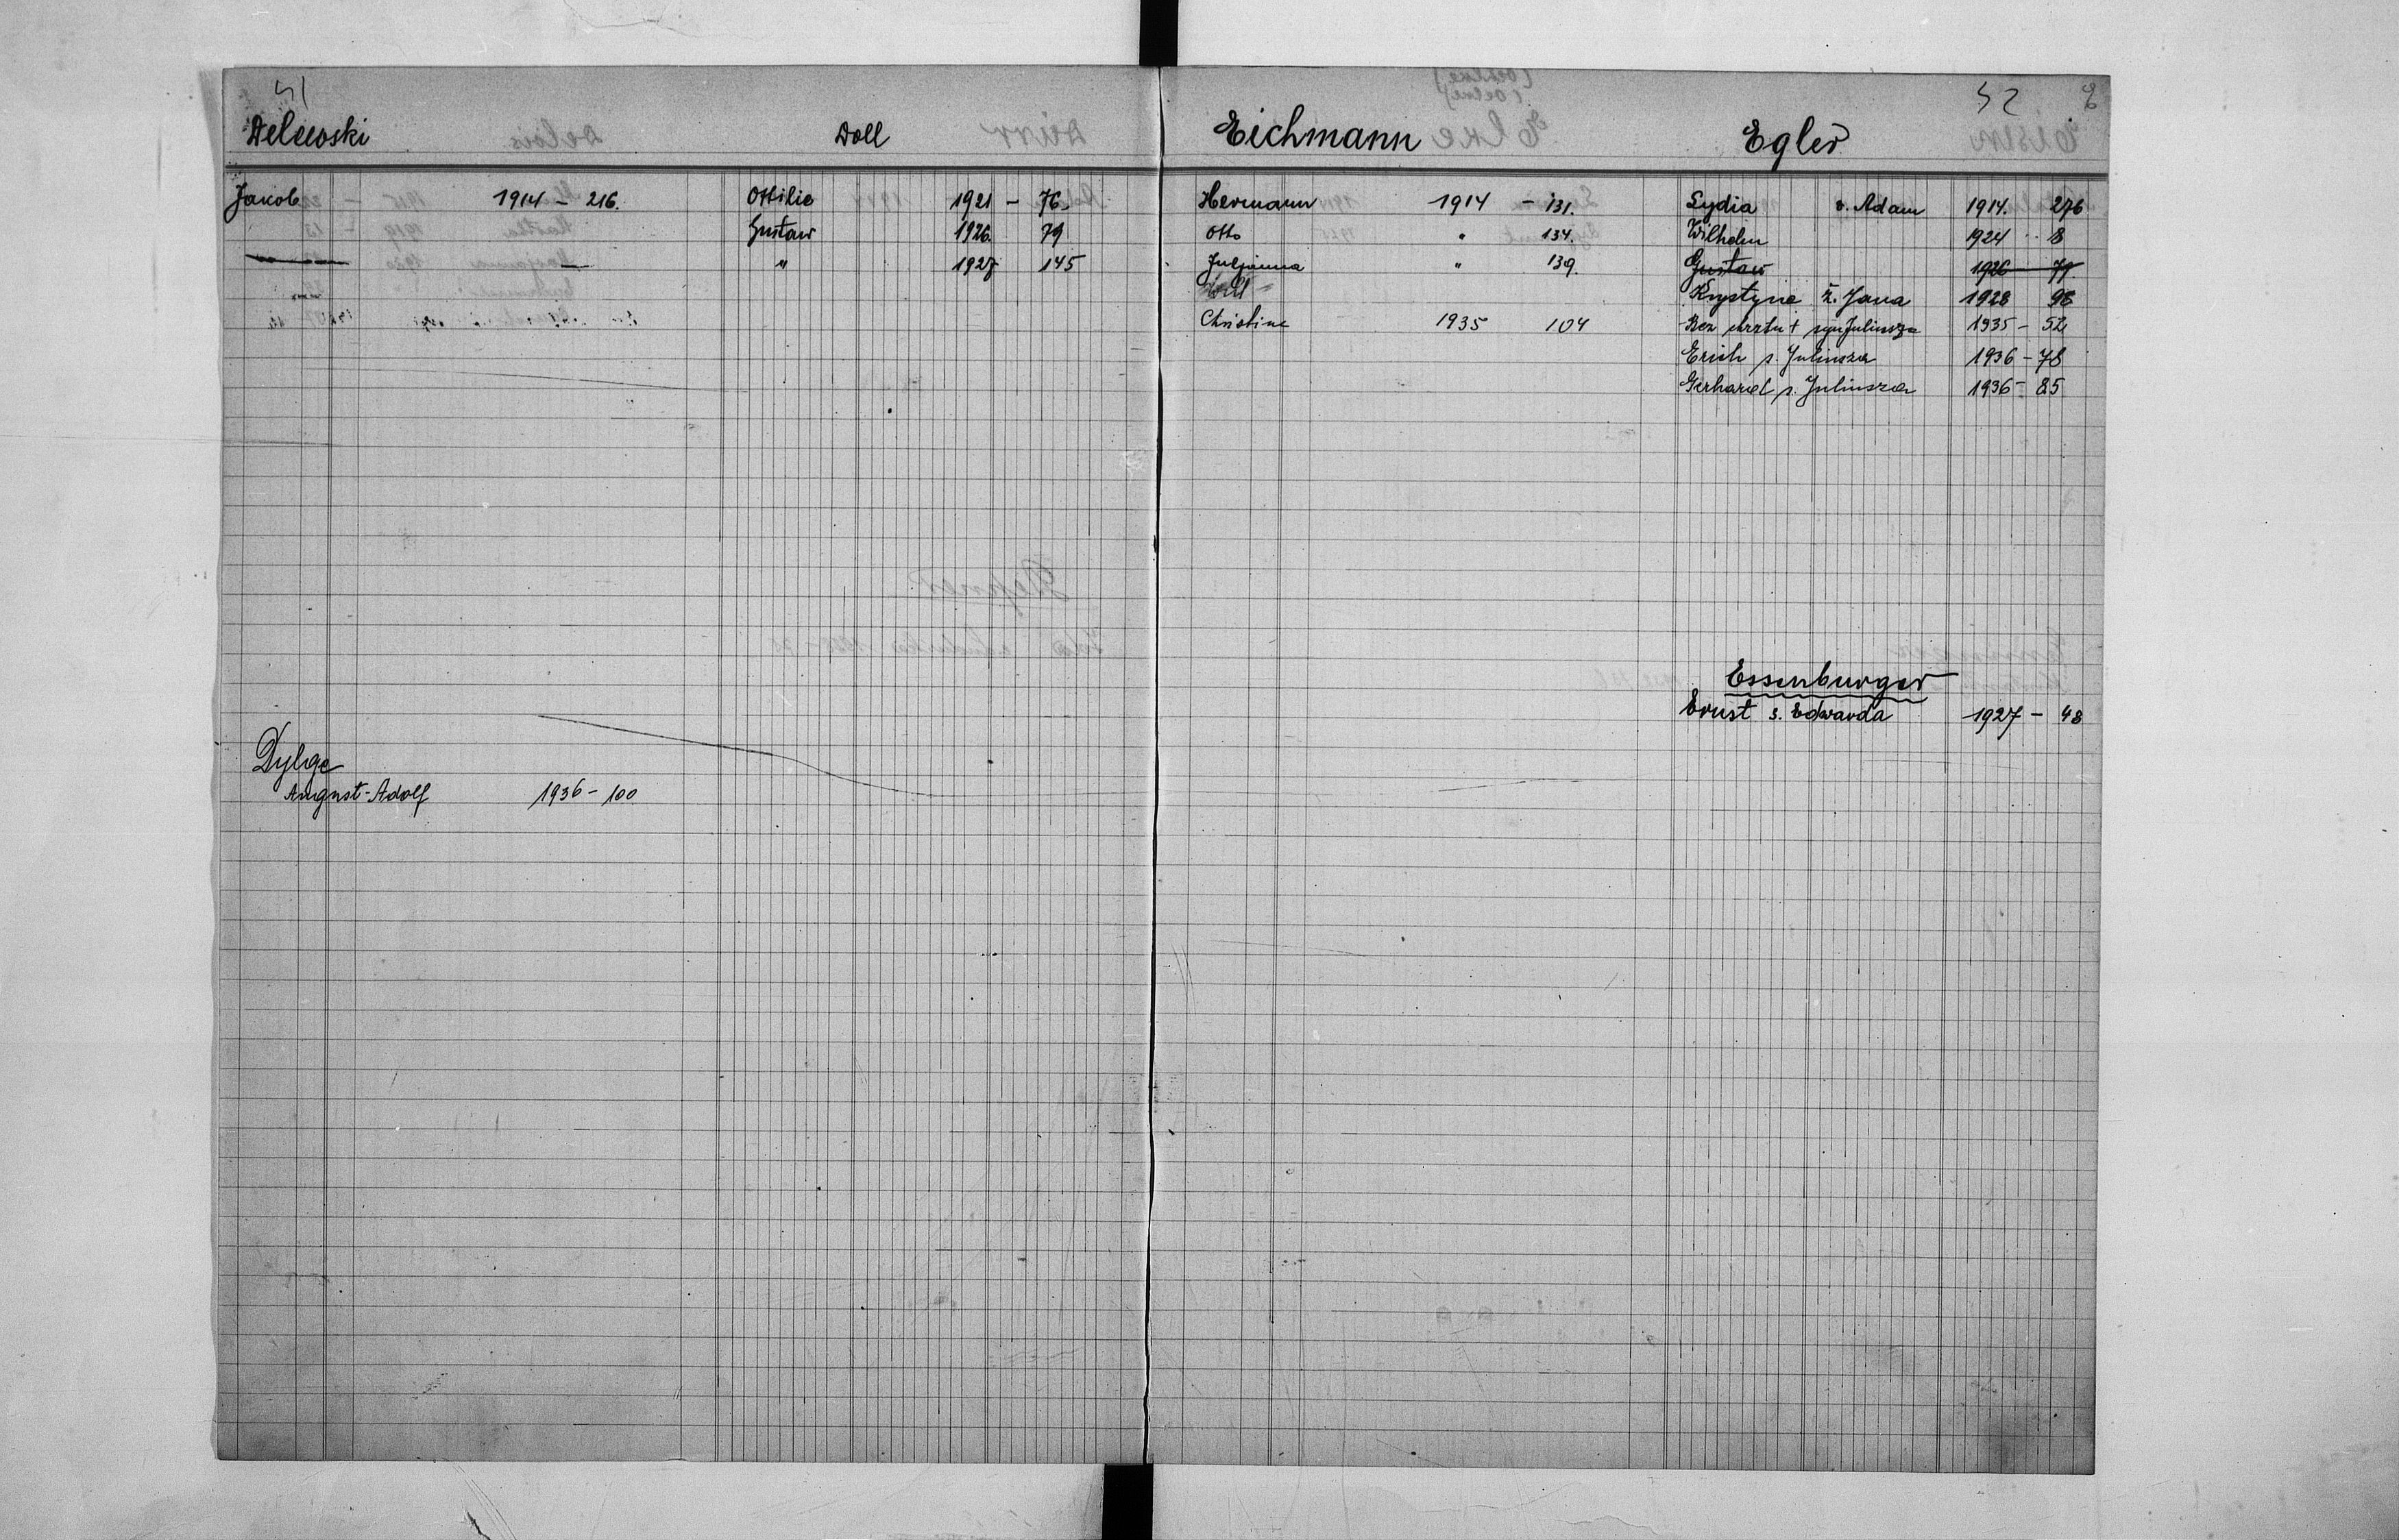 51
Delewski
Jakob 1914 - 216.
Dylge
August-Adolf 1936 - 100
Doll
Ottilie 1921 - 76
Gustaw 1926. 79
" 1927 145
52
Eichmann
Hermann 1914 - 131.
Otto " 134.
Juljanna " 139.
Christine 1935 104
Egler
Lydia v. Adam 1914. 276
Wilhelm 1924 8
Gustaw 1926 79
Krystyne ż. Jana 1928 96
Bez chrztu + syn Juliusza 1935 - 52
Erich s. Juliusza 1936 - 78
Gerhard s. Juliusza 1936 - 85
Essenburger
Ernst s. Edwarda 1927 - 48